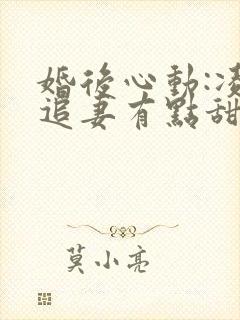 婚後心動:凌
追妻有點甜
莫小亮